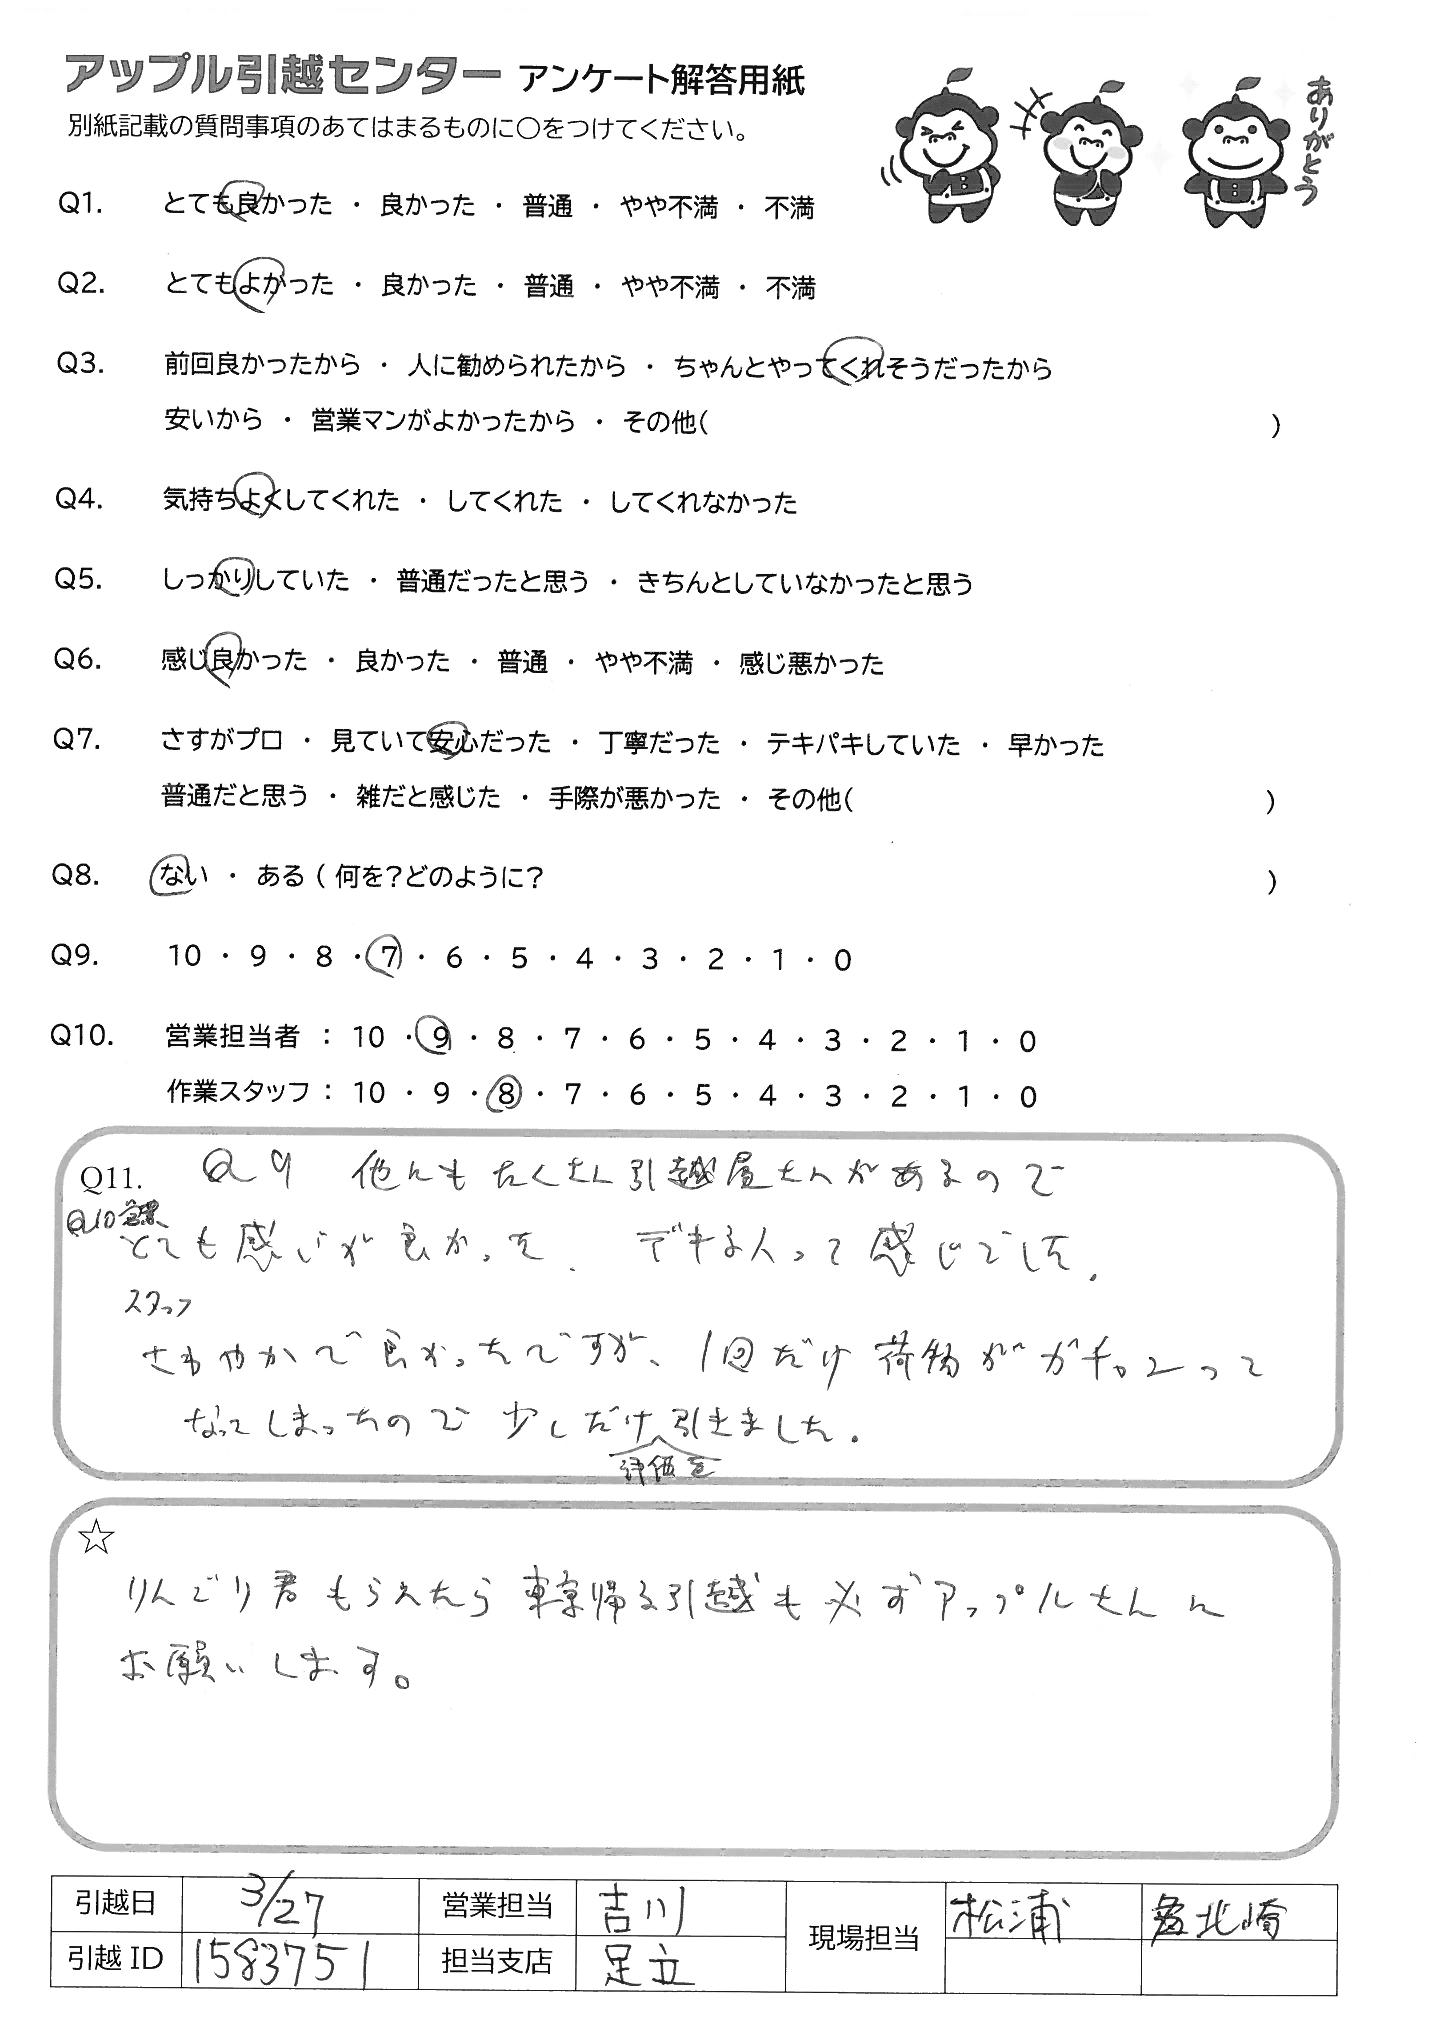 アップル引越センター アンケート解答用紙
別紙記載の質問事項のあてはまるものに○をつけてください。
ありがとう
Q1. とても良かった ・ 良かった ・ 普通 ・ やや不満 ・ 不満
Q2. とてもよかった ・ 良かった ・ 普通 ・ やや不満 ・ 不満
Q3. 前回良かったから ・ 人に勧められたから ・ ちゃんとやってくれそうだったから
安いから ・ 営業マンがよかったから ・ その他( )
Q4. 気持ちよくしてくれた ・ してくれた ・ してくれなかった
Q5. しっかりしていた ・ 普通だったと思う ・ きちんとしていなかったと思う
Q6. 感じ良かった ・ 良かった ・ 普通 ・ やや不満 ・ 感じ悪かった
Q7. さすがプロ ・ 見ていて安心だった ・ 丁寧だった ・ テキパキしていた ・ 早かった
普通だと思う ・ 雑だと感じた ・ 手際が悪かった ・ その他( )
Q8. ない ・ ある ( 何を?どのように? )
Q9. 10 ・ 9 ・ 8 ・ 7 ・ 6 ・ 5 ・ 4 ・ 3 ・ 2 ・ 1 ・ 0
Q10. 営業担当者 : 10 ・ 9 ・ 8 ・ 7 ・ 6 ・ 5 ・ 4 ・ 3 ・ 2 ・ 1 ・ 0
作業スタッフ : 10 ・ 9 ・ 8 ・ 7 ・ 6 ・ 5 ・ 4 ・ 3 ・ 2 ・ 1 ・ 0
Q11. Q9 他にもたくさん引越屋さんがあるので
Q10営業
とても感じが良かった. デキる人って感じでした.
スタッフ
さわやかで良かったですが、1回だけ荷物がガチャンって
なってしまったので 少しだけ引きました.
評価を
☆
りんごり君もらえたら東京帰る引越も必ずアップルさんに
お願いします。
引越日 3/27 営業担当 吉川 現場担当 松浦 北崎
引越ID 1583751 担当支店 足立